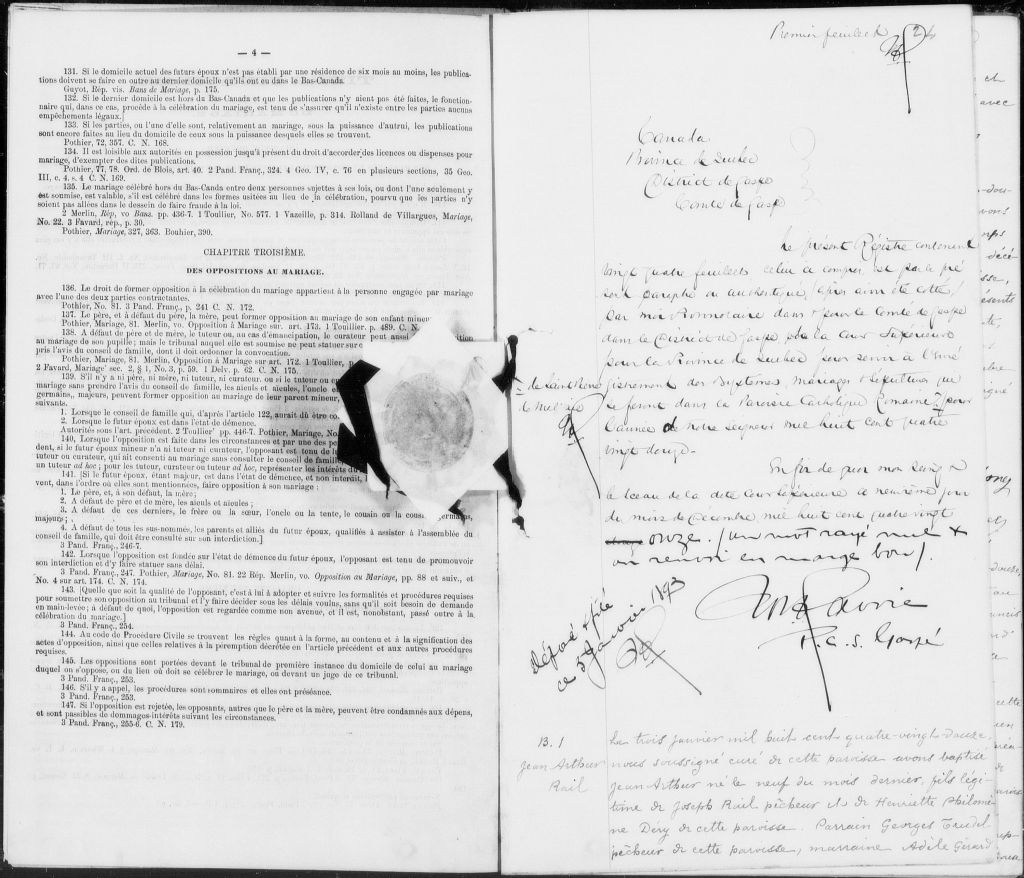 — 4 —
131. Si le domicile actuel des futurs époux n'est pas établi par une résidence de six mois au moins, les publica-
tions doivent se faire en outre au dernier domicile qu'ils ont eu dans le Bas-Canada.
Guyot, Rép. vis. Bans de Mariage, p. 175.
132. Si le dernier domicile est hors du Bas-Canada et que les publications n'y aient pas été faites, le fonction-
naire qui, dans ce cas, procède à la célébration du mariage, est tenu de s'assurer qu'il n'existe entre les parties aucuns
empêchements légaux.]
133. Si les parties, ou l'une d'elle sont, relativement au mariage, sous la puissance d'autrui, les publications
sont encore faites au lieu du domicile de ceux sous la puissance desquels elles se trouvent.
Pothier, 72, 357. C. N. 168.
134. Il est loisible aux autorités en possession jusqu'à présent du droit d'accorder des licences ou dispenses pour
mariage, d'exempter des dites publications.
Pothier, 77, 78. Ord. de Blois, art. 40. 2 Pand. Franç., 324. 4 Geo. IV, c. 76 en plusieurs sections, 35 Geo.
III, c. 4. s. 4 C. N. 169.
135. Le mariage célébré hors du Bas-Canda entre deux personnes sujettes à ses lois, ou dont l'une seulement y
est soumise, est valable, s'il est célébré dans les formes usitées au lieu de la célébration, pourvu que les parties n'y
soient pas allées dans le dessein de faire fraude à la loi.
2 Merlin, Rép, vo Bans. pp. 436-7. 1 Toullier, No. 577. 1 Vazeille, p. 314. Rolland de Villargues, Mariage,
No. 22. 3 Favard, rép., p. 30.
Pothier, Mariage, 327, 363. Bouhier, 390.
CHAPITRE TROISIÈME.
DES OPPOSITIONS AU MARIAGE.
136. Le droit de former opposition à la célébration du mariage appartient à la personne engagée par mariage
avec l'une des deux parties contractantes.
Pothier, No. 81. 3 Pand. Franç., p. 241 C. N. 172.
137. Le père, et à défaut du père, la mère, peut former opposition au mariage de son enfant mineur
Pothier, Mariage, 81. Merlin, vo. Opposition à Mariage sur. art. 173. 1 Toullier. p. 489. C. N.
138. A défaut de père et de mère, le tuteur ou, au cas d'émancipation, le curateur peut aussi
au mariage de son pupille; mais le tribunal auquel elle est soumise ne peut statuer sur
pris l'avis du conseil de famille, dont il doit ordonner la convocation.
Pothier, Mariage, 81. Merlin, Opposition à Mariage sur art. 172. 1 Toullier,
2 Favard, Mariage' sec. 2, § 1, No. 3, p. 59. 1 Delv. p. 62. C. N. 175.
139. S'il n'y a ni père, ni mère, ni tuteur, ni curateur, ou si le tuteur ou
mariage sans prendre l'avis du conseil de famille, les aïeuls et aïeules, l'oncle
germains, majeurs, peuvent former opposition au mariage de leur parent mineur,
suivants.
1. Lorsque le conseil de famille qui, d'après l'article 122, aurait dû être
2. Lorsque le futur époux est dans l'état de démence.
Autorités sous l'art. précédent. 2 Toullier' pp. 446-7. Pothier, Mariage, No.
140, Lorsque l'opposition est faite dans les circonstances et par une des
dent, si le futur époux mineur n'a ni tuteur ni curateur, l'opposant est tenu de
tuteur ou curateur, qui ait consenti au mariage sans consulter le conseil de
un tuteur ad hoc; pour les tuteur, curateur ou tuteur ad hoc, représenter les intérêts
141. Si le futur époux, étant majeur, est dans l'état de démence, et non interdit,
vent, dans l'ordre où elles sont mentionnées, faire opposition à son mariage:
1. Le père, et, à son défaut, la mère;
2. A défaut de père et de mère, les aïeuls et aïeules;
3. A défaut de ces derniers, le frère ou la sœur, l'oncle ou la tante, le cousin ou la germains,
majeurs;
4. A défaut de tous les sus-nommés, les parents et alliés du futur époux, qualifiés à assister à l'assemblée du
conseil de famille, qui doit être consulté sur son interdiction.]
3 Pand. Franç., 246-7.
142. Lorsque l'opposition est fondée sur l'état de démence du futur époux, l'opposant est tenu de promouvoir
son interdiction et d'y faire statuer sans délai.
3 Pand. Franç., 247. Pothier, Mariage, No. 81. 22 Rép. Merlin, vo. Opposition au Mariage, pp. 88 et suiv., et
No. 4 sur art. 174. C. N. 174.
143. [Quelle que soit la qualité de l'opposant, c'est à lui à adopter et suivre les formalités et procédures requises
pour soumettre son opposition au tribunal et l'y faire décider sous les délais voulus, sans qu'il soit besoin de demande
en main-levée; à défaut de quoi, l'opposition est regardée comme non avenue, et il est, nonobstant, passé outre à la
célébration du mariage.]
3 Pand. Franç., 254.
144. Au code de Procédure Civile se trouvent les règles quant à la forme, au contenu et à la signification des
actes d'opposition, ainsi que celles relatives à la péremption décrétée en l'article précédent et aux autres procédures
requises.
145. Les oppositions sont portées devant le tribunal de première instance du domicile de celui au mariage
duquel on s'oppose, ou du lieu où doit se célébrer le mariage, ou devant un juge de ce tribunal.
3 Pand. Franç., 253.
146. S'il y a appel, les procédures sont sommaires et elles ont préséance.
3 Pand. Franç., 253.
147. Si l'opposition est rejetée, les opposants, autres que le père et la mère, peuvent être condamnés aux dépens,
et sont passibles de dommages-intérêts suivant les circonstances.
3 Pand. Franç., 255-6. C. N. 179.
Premier feuillet 24
Canada
Province de Quebec
District de Gaspe
Comté de Gaspé
Le présent Régistre contenant
vingt quatre feuillets celui ci compris est par le pré
sent paraphé ou authentiqué, après avoir été cotté,
par moi Protonotaire dans & pour le Comté de Gaspe
dans le District de Gaspe de la Cour Supérieure
pour la Province de Quebec pour servir à l'Enré
gistrement des Bystemes, mariages & sépultures qui
se feront dans la Paroisse Catholique Romaine pour
l'année de notre seigneur mil huit cent quatre
vingt douze.
de Saint René
En foi de quoi mon seing &
le sceau de la dite Cour Supérieure ce neuvième jour
du mois de Décembre mil huit cent quatre vingt
onze. (un mot rayé nul &
un renvoi en marge bon).
P. C. S. Gaspé
Déposé
ce 5 Janvier 1893
B. 1
Jean Arthur
Rail
Le trois janvier mil huit cent quatre-vingt-douze,
nous soussigné curé de cette paroisse avons baptisé
Jean Arthur né le neuf du mois dernier, fils légi-
time de Joseph Rail pêcheur et de Henriette Philomè-
ne Déry de cette paroisse. Parrain Georges Trudel
pêcheur de cette paroisse, marraine Adèle Girard